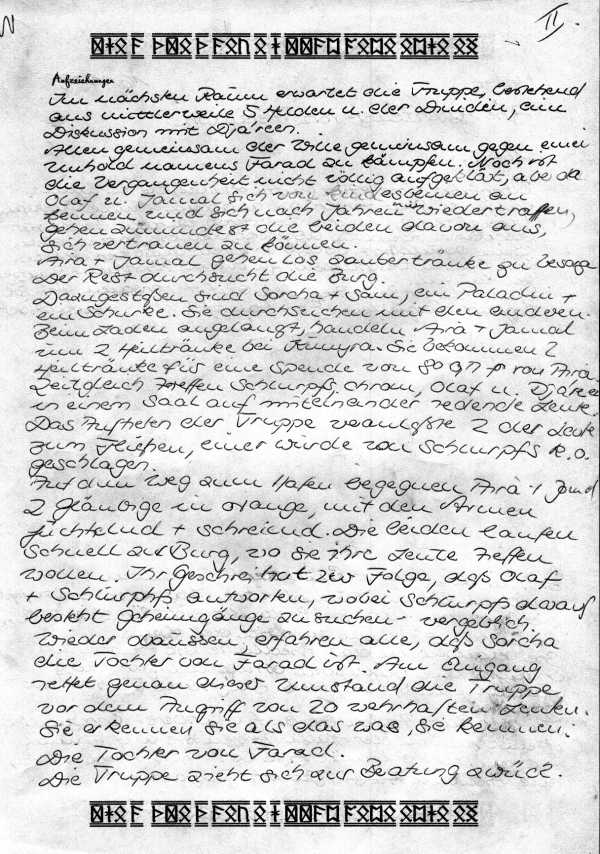 II.
Aufzeichnungen
Im nächsten Raum erwartet die Truppe, bestehend
aus mittlerweile 5 Helden u. der Druiden, ein
Diskussion mit Djareen.
Allen gemeinsam der Wille gemeinsam gegen einen
Unhold namens Farad zu kämpfen. Noch ist
die Vergangenheit nicht völlig aufgeklät, aber da
Olaf u. Jamal sich von Kindesbeinen an
kennen und sich nach Jahren nun wiedertraffen,
gehen zumindest die beiden davon aus,
sich vertrauen zu können.
Aira + Jamal gehen los Zaubertränke zu besorgen
Der Rest durchsucht die Burg.
Dazugestoßen sind Sorcha + Sam, ein Paladin +
ein Schurke. Sie durchsuchen mit den anderen.
Beim Laden angelangt, handeln Aira + Jamal
um 2 Heiltränke bei Kumyra. Sie bekommen 2
Heiltränke für eine Spende von 80 von Aira
Zeitgleich treffen Schlurpfs, chrom, Olaf u. Djareen
in einem Saal auf miteinander redende Leute.
Das Auftreten der Truppe veranlaßte 2 der Leute
zum Fliehen, einer wurde von Schlurpfs K.O.
geschlagen.
Auf dem Weg zum Hafen begegnen Aira + Jamal
2 Gläubige in orange, mit den Armen
füchtelnd + schreiend. Die beiden laufen
Schnell zur Burg, wo sie ihre Leute treffen
wollen. Ihr Geschrei hat zur Folge, daß Olaf
+ Schlurpfs antworten, wobei Schlurpfs darauf
besteht Geheimgänge zu suchen - vergeblich.
Wieder draussen, erfahren alle, daß Sorcha
die Tochter von Farad ist. Am Eingang
rettet genau dieser Umstand die Truppe
vor dem Angriff von 20 wehrhaften Leuten.
Sie erkennen Sie als das was Sie kennen:
Die Tochter von Farad.
Die Truppe zieht sich zur Beratung zurück.